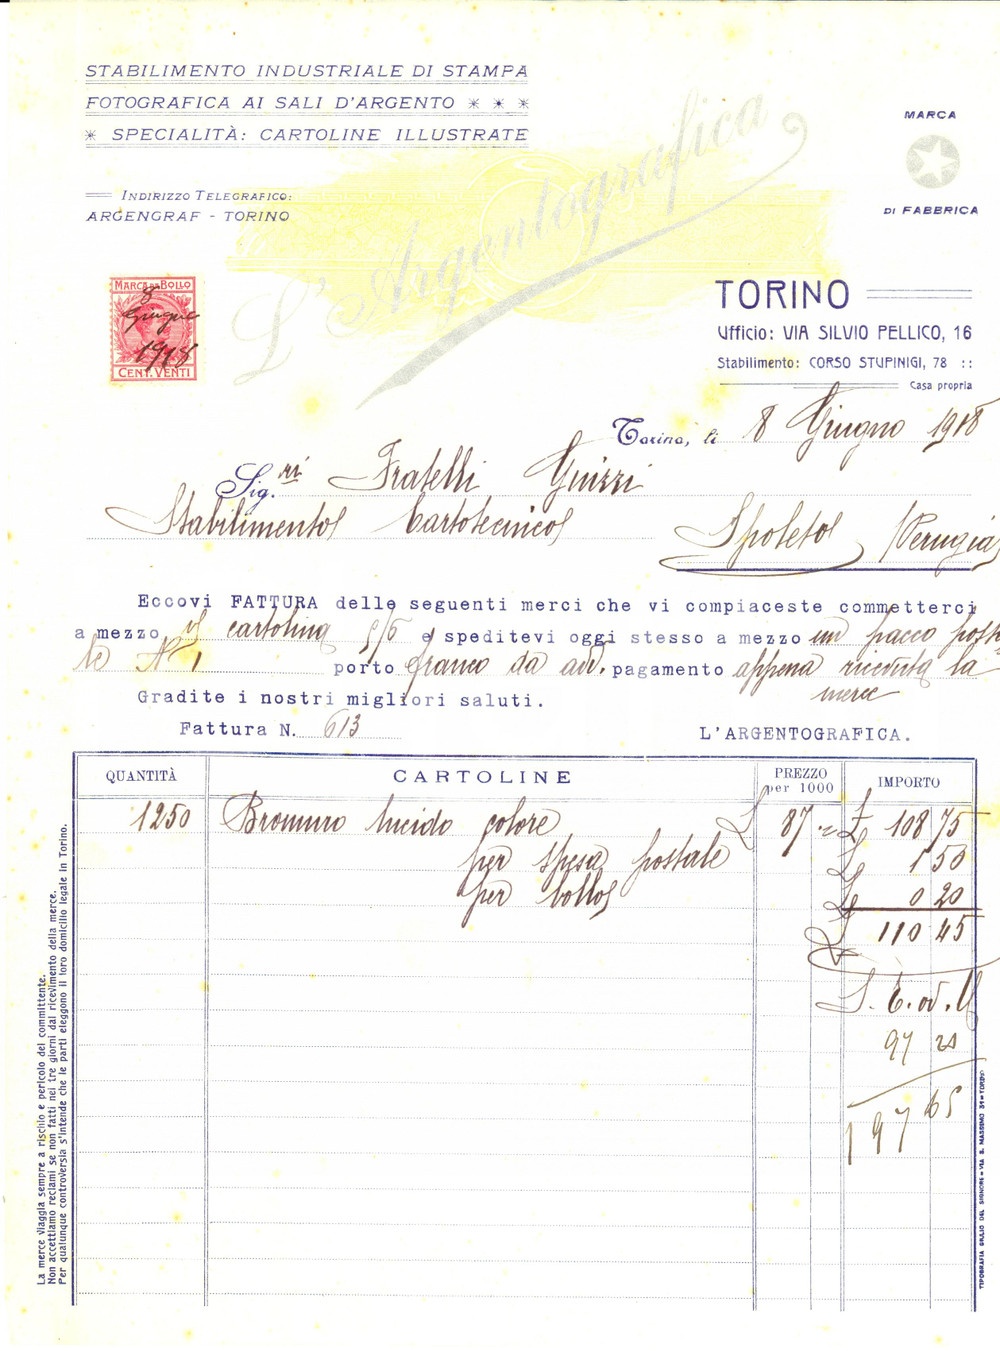 STABILIMENTO INDUSTRIALE DI STAMPA
FOTOGRAFICA AI SALI D'ARGENTO * * *
* SPECIALITÀ: CARTOLINE ILLUSTRATE
INDIRIZZO TELEGRAFICO:
ARGENGRAF - TORINO
L'Argentografica
MARCA
DI FABBRICA
MARCA DA BOLLO
8
Giugno
1918
CENT. VENTI
TORINO
Ufficio: VIA SILVIO PELLICO, 16
Stabilimento: CORSO STUPINIGI, 78 ::
Casa propria
Torino, li 8 Giugno 1918
Sig.ri Fratelli Guizzi
Stabilimento Cartotecnico Spoleto (Perugia)
Eccovi FATTURA delle seguenti merci che vi compiaceste commetterci
a mezzo cartolina 5/6 e speditevi oggi stesso a mezzo un pacco posta
le N° 1 porto franco da add. pagamento appena ricevuta la
merce
Gradite i nostri migliori saluti.
Fattura N. 613
L'ARGENTOGRAFICA.
QUANTITÀ CARTOLINE PREZZO per 1000 IMPORTO
1250 Bromuro lucido colore £ 87 £ 108 75
per spesa postale £ 1 50
per bollo £ 0 20
£ 110 45
S. E. od. O.
97 20
197 65
La merce viaggia sempre a rischio e pericolo del committente.
Non accettiamo reclami se non fatti nei tre giorni dal ricevimento della merce.
Per qualunque controversia s'intende che le parti eleggono il loro domicilio legale in Torino.
TIPOGRAFIA GIULIO DEL SIGNORE - VIA S. MASSIMO 31 - TORINO